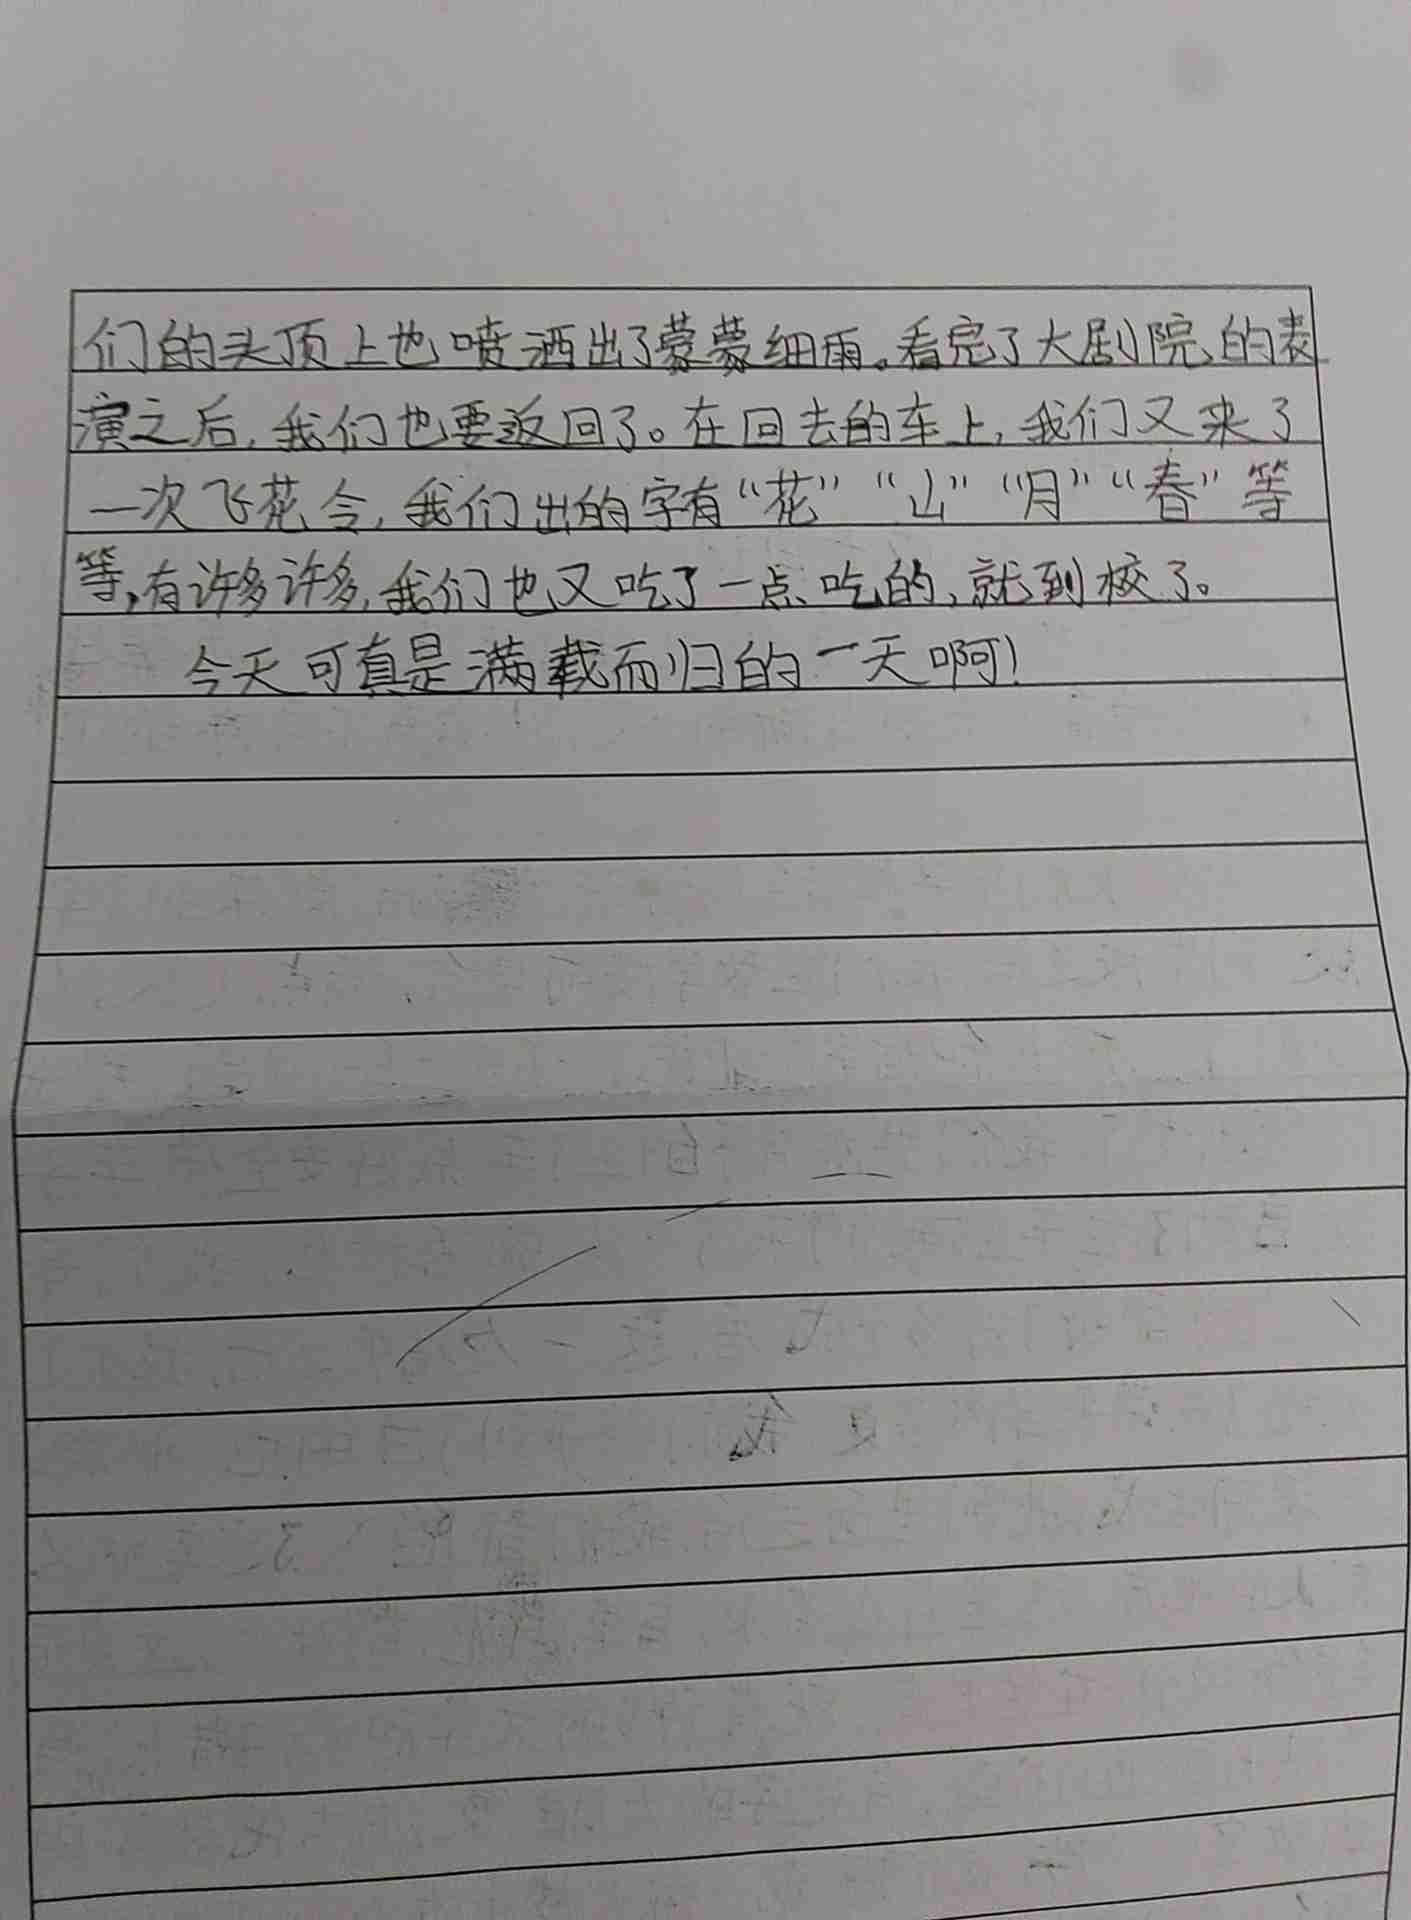 们的头顶上也喷洒出了蒙蒙细雨。看完了大剧院的表
演之后,我们也要返回了。在回去的车上,我们又来了
一次飞花令,我们出的字有“花”“山”“月”“春”等
等,有许多许多,我们也又吃了一点吃的,就到校了。
今天可真是满载而归的一天啊!